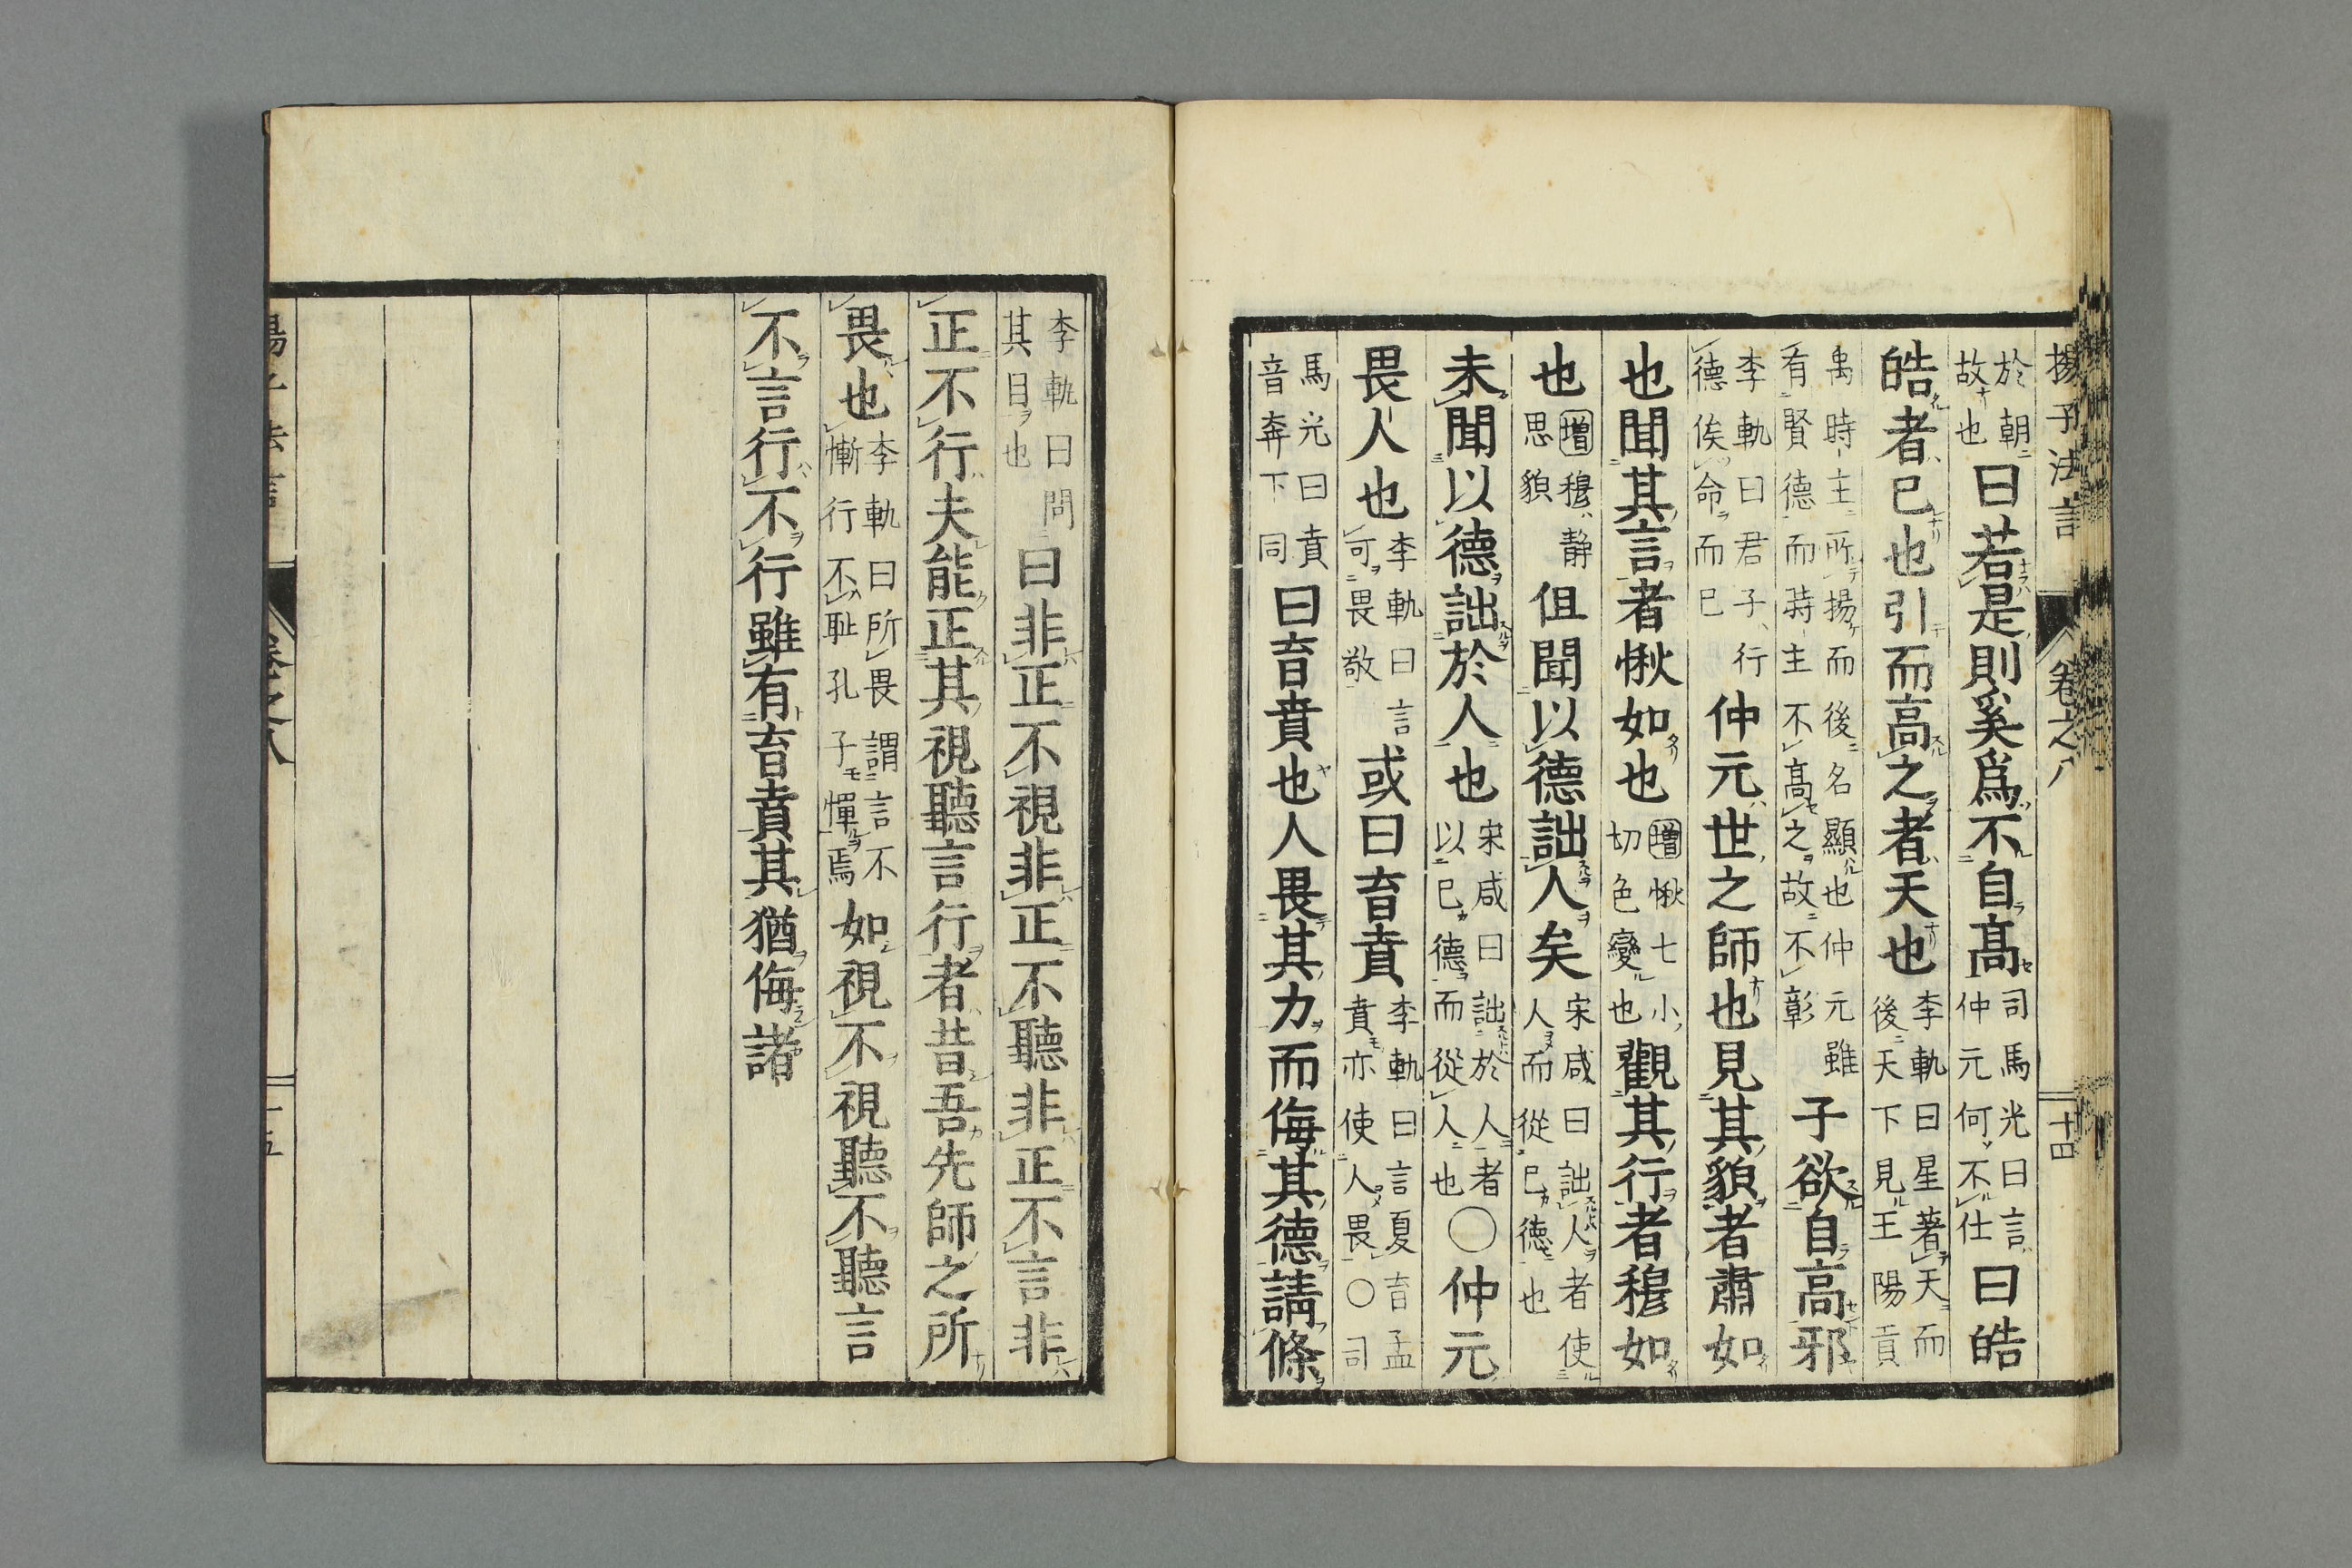 揚子法言 卷之八 十四
於朝故也曰若是則奚爲不自髙司馬光曰言仲元何不仕曰皓
皓者已也引而高之者天也李軌曰星著天而後天下見王陽貢
禹時主所揚而後名顯也仲元雖有賢德而時主不高之故不彰子欲自高邪
李軌曰君子行德俟命而已仲元世之師也見其貌者肅如
也聞其言者愀如也增愀七小切色變也觀其行者穆如
也增穆静思貌但聞以德詘人矣宋咸曰詘人者使人而從已德也
未聞以德詘於人也宋咸曰詘於人者以已德而從人也○仲元
畏人也李軌曰言可畏敬或曰育賁李軌曰言夏育孟賁亦使人畏○司
馬光曰賁音奔下同曰育賁也人畏其力而侮其德請條
李軌曰問其目也曰非正不視非正不聽非正不言非
正不行夫能正其視聽言行者昔吾先師之所
畏也李軌曰所畏謂言不慚行不恥孔子憚焉如視不視聽不聽言
不言行不行雖有育賁其猶侮諸